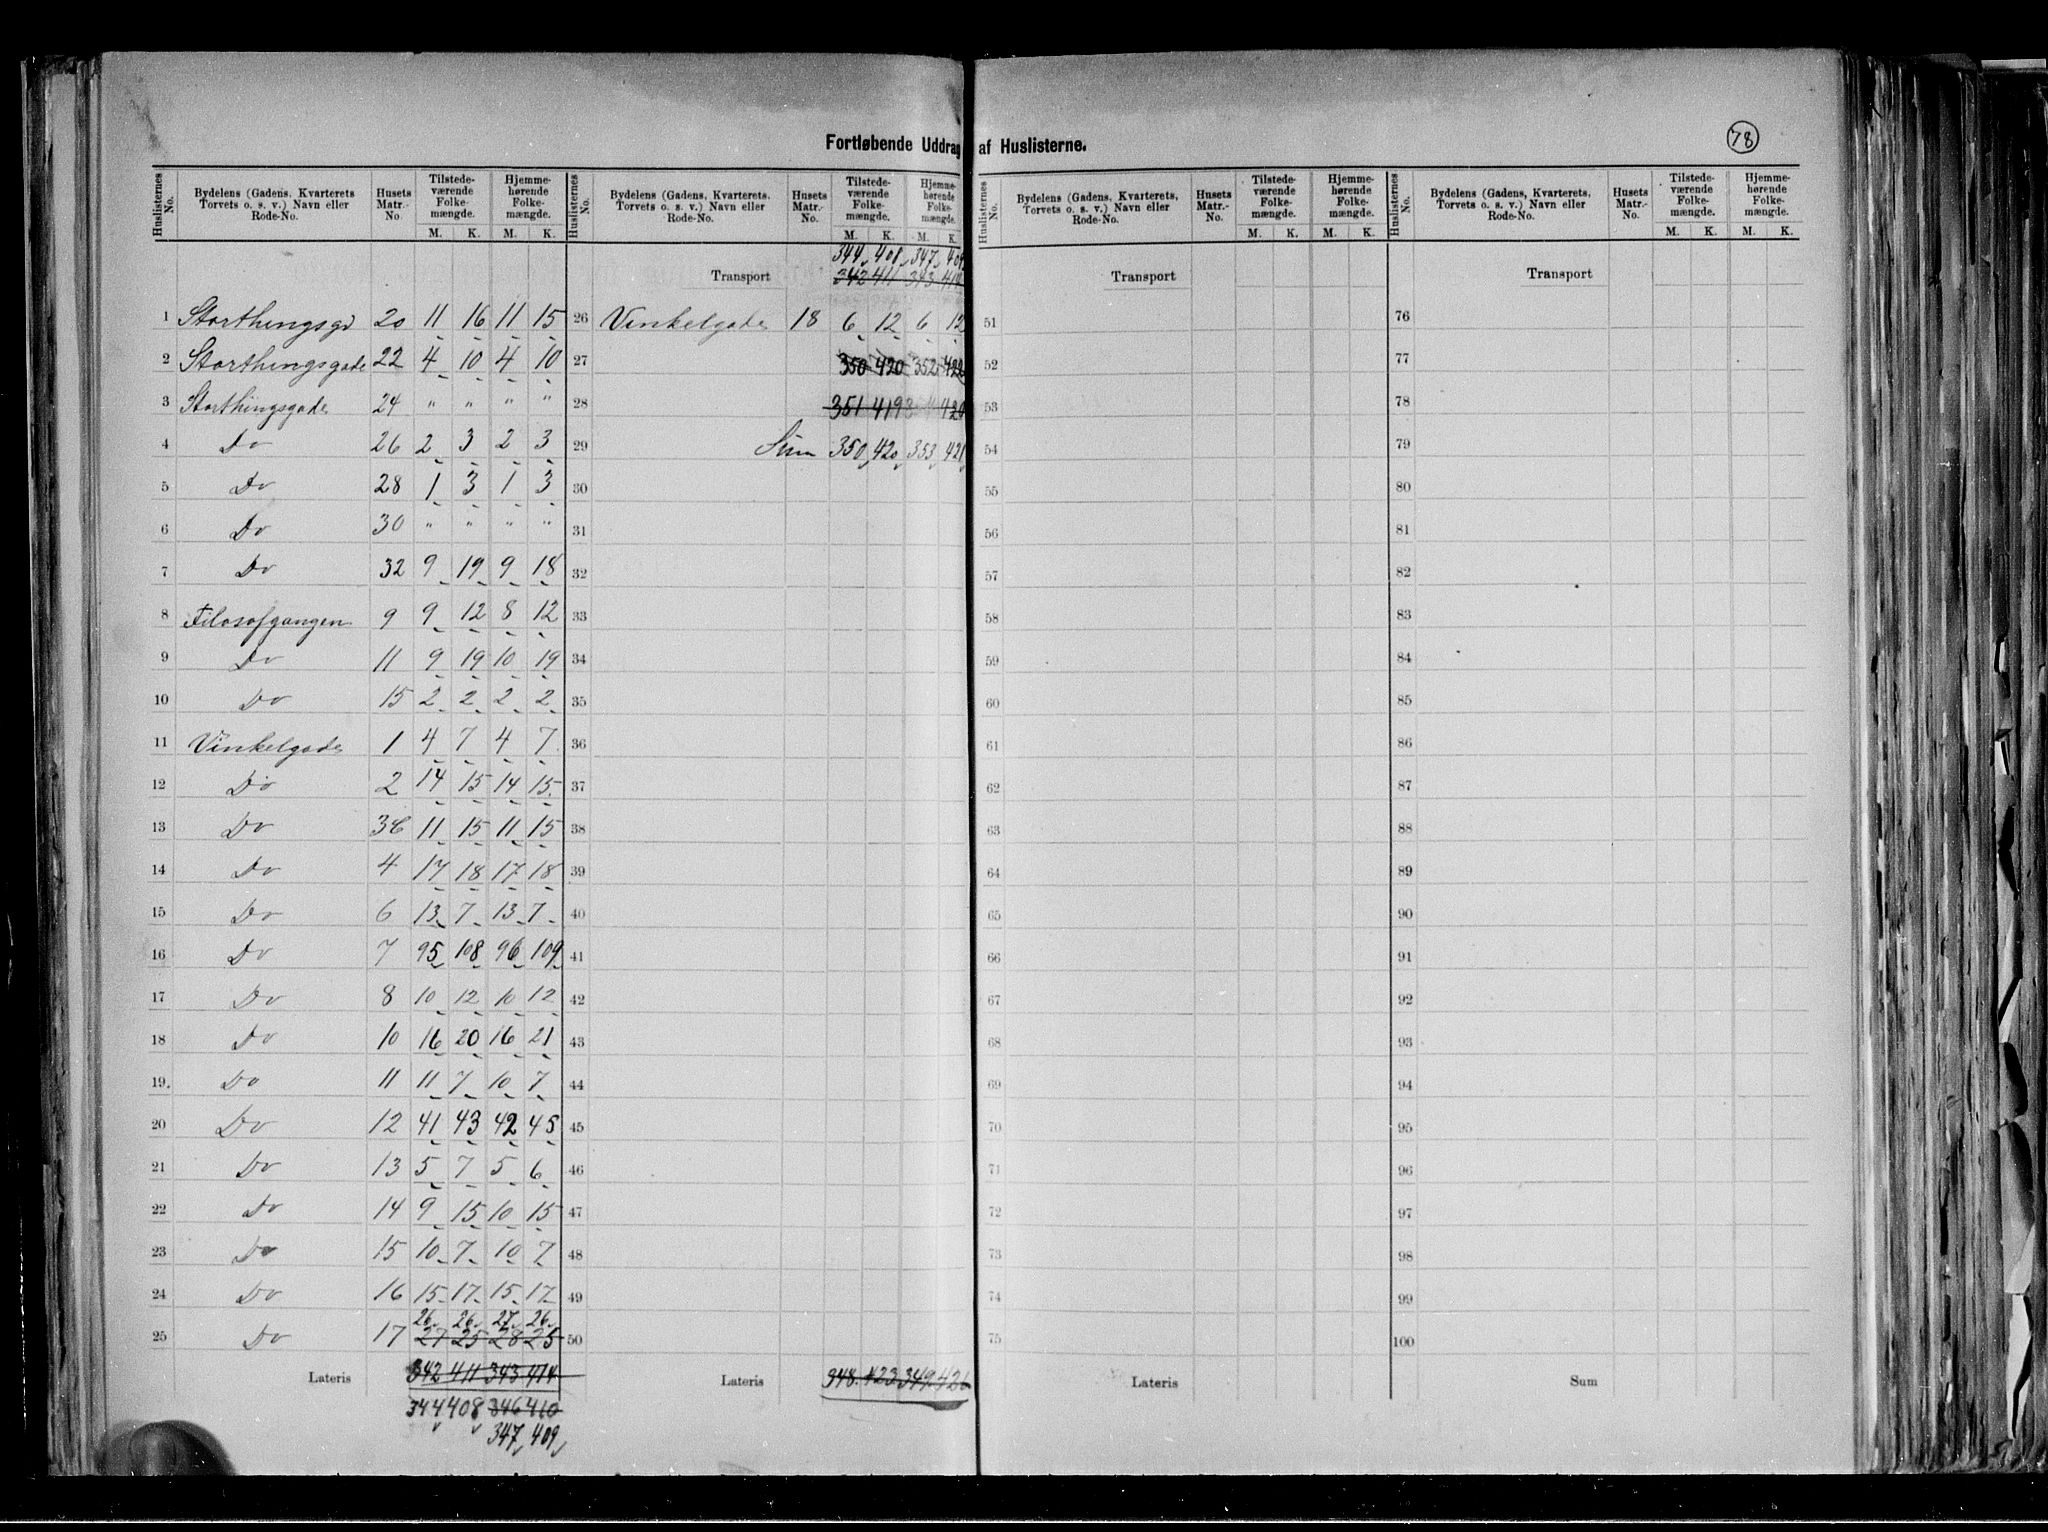 Fortløbende Uddrag af Huslisterne.
78
Huslisternes No. | Bydelens (Gadens, Kvarterets Torvets o. s. v.) Navn eller Rode-No. | Husets Matr.-No. | Tilstedeværende Folkemængde. M. K. | Hjemmehørende Folkemængde. M. K.
1 Storthingsgd 20 11 16 11 15
2 Storthingsgade 22 4 10 4 10
3 Storthingsgade 24 " " " "
4 Do 26 2 3 2 3
5 Do 28 1 3 1 3
6 Do 30 " " " "
7 Do 32 9 19 9 18
8 Filosofgangen 9 9 12 8 12
9 Do 11 9 19 10 19
10 Do 15 2 2 2 2
11 Vinkelgade 1 4 7 4 7
12 Do 2 14 15 14 15
13 Do 11 15 11 15
14 Do 4 17 18 17 18
15 Do 6 13 7 13 7
16 Do 7 95 108 96 109
17 Do 8 10 12 10 12
18 Do 10 16 20 16 21
19. Do 11 11 7 10 7
20 Do 12 41 43 42 45
21 Do 13 5 7 5 6
22 Do 14 9 15 10 15
23 Do 15 10 7 10 7
24 Do 16 15 17 15 17
26 26 27 26
25 Do 17 27 25 28 25
Lateris 342 411 343 414
344 408 346 410
347 409
Huslisternes No. | Bydelens (Gadens, Kvarterets, Torvets o. s. v.) Navn eller Rode-No. | Husets Matr.-No. | Tilstedeværende Folkemængde. M. K. | Hjemmehørende Folkemængde. M. K.
344 408 347 409
Transport 342 411 343 414
26 Vinkelgade 18 6 12 6 12
27 350 420 352 422
28 351 419 420
29 Sum 350 420 353 421
30
31
32
33
34
35
36
37
38
39
40
41
42
43
44
45
46
47
48
49
50
Lateris 348 423 349 426
Huslisternes No. | Bydelens (Gadens, Kvarterets, Torvets o. s. v.) Navn eller Rode-No. | Husets Matr.-No. | Tilstedeværende Folkemængde. M. K. | Hjemmehørende Folkemængde. M. K.
Transport
51
52
53
54
55
56
57
58
59
60
61
62
63
64
65
66
67
68
69
70
71
72
73
74
75
Lateris
Huslisternes No. | Bydelens (Gadens, Kvarterets, Torvets o. s. v.) Navn eller Rode-No. | Husets Matr.-No. | Tilstedeværende Folkemængde. M. K. | Hjemmehørende Folkemængde. M. K.
Transport
76
77
78
79
80
81
82
83
84
85
86
87
88
89
90
91
92
93
94
95
96
97
98
99
100
Sum